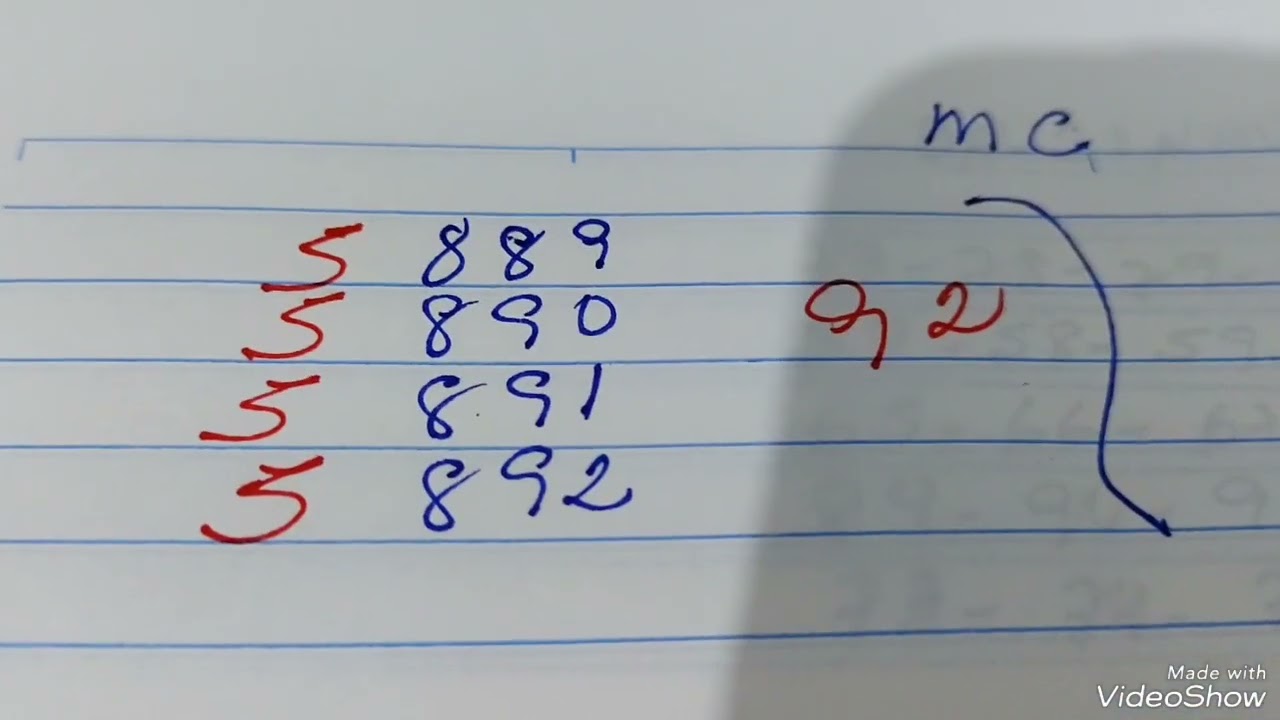 mc
5 889
5 890
92
5 891
5 892
Made with
VideoShow